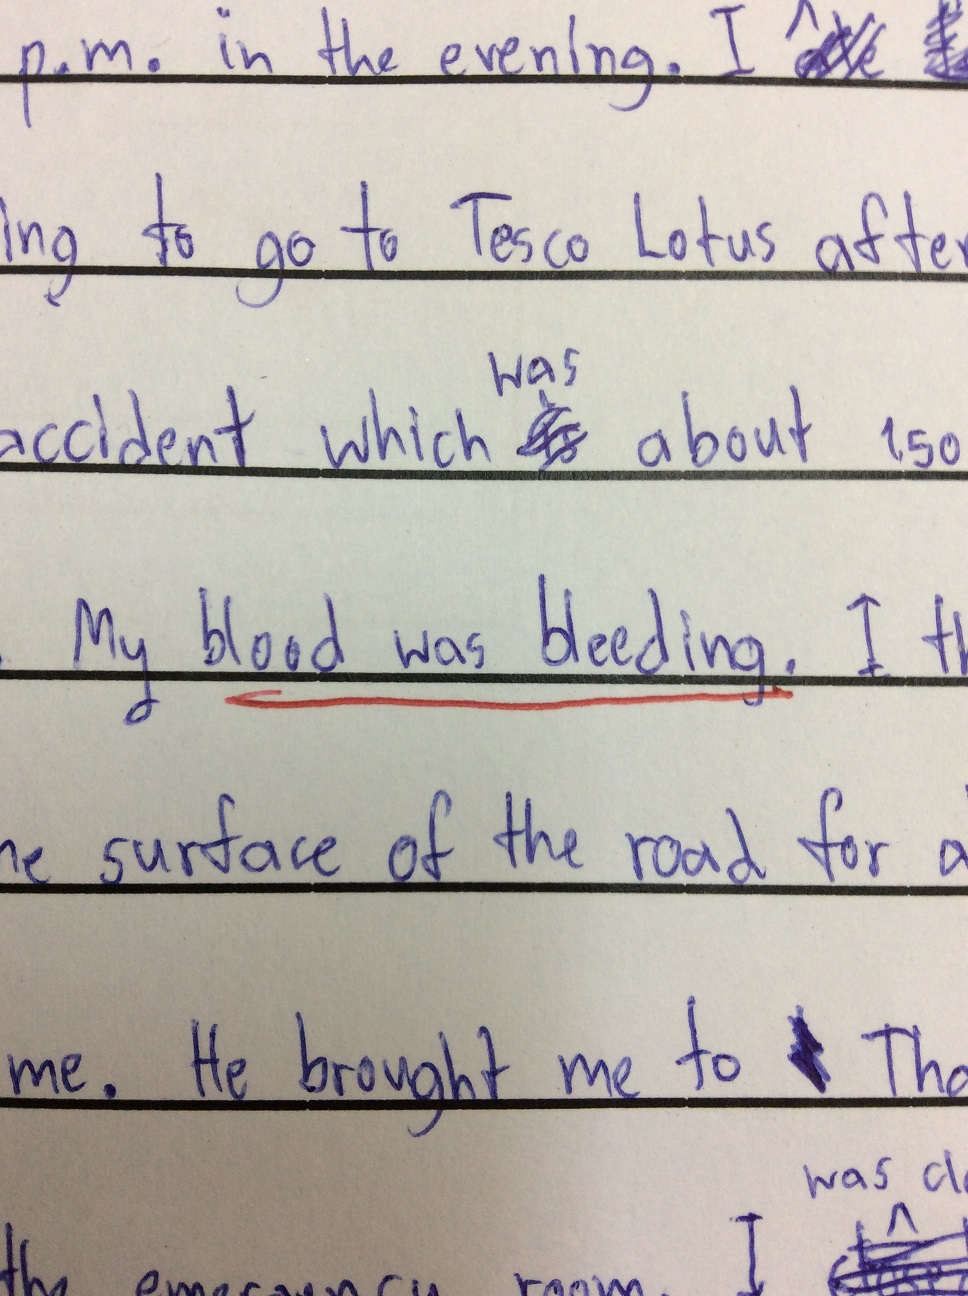 p.m. in the evening. I
ing to go to Tesco Lotus after
was
accident which about 150
My blood was bleeding. I th
he surface of the road for a
me. He brought me to Tha
was clo
the emergency room. I